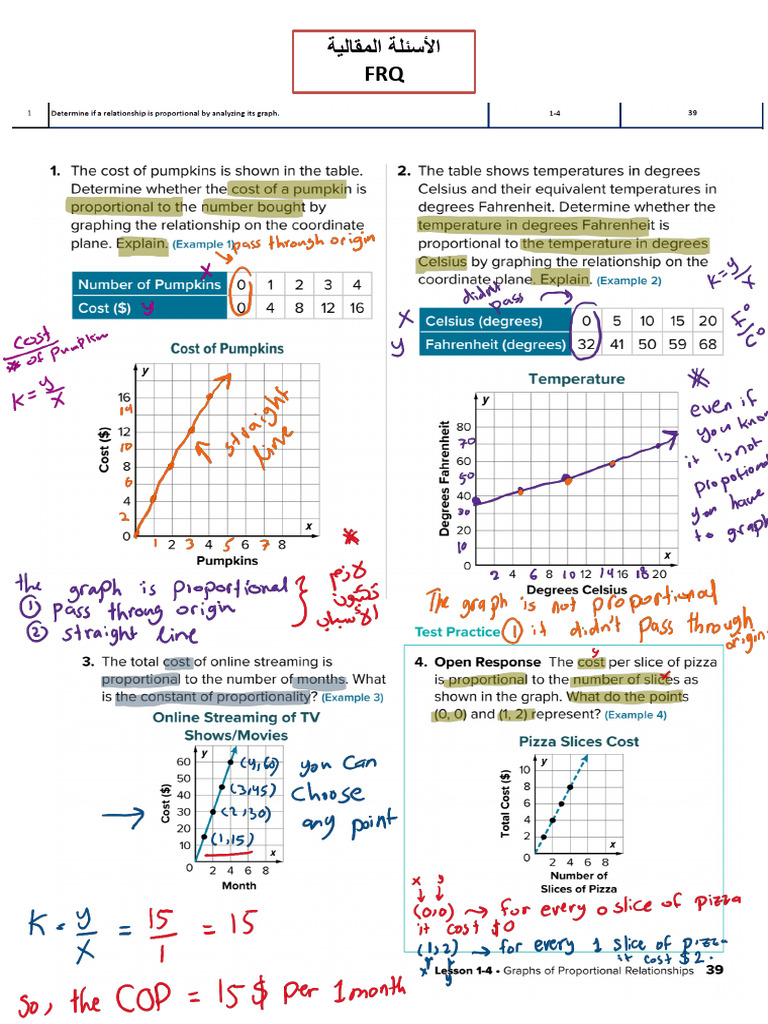 الأسئلة المقالية
FRQ
1 Determine if a relationship is proportional by analyzing its graph. 1-4 39
1. The cost of pumpkins is shown in the table.
Determine whether the cost of a pumpkin is
proportional to the number bought by
graphing the relationship on the coordinate
plane. Explain. (Example 1)
pass through origin
x
Number of Pumpkins 0 1 2 3 4
Cost ($) y 0 4 8 12 16
cost
# of pumpkin
K = y/x
Cost of Pumpkins
y
16
14
12
10
8
6
4
2
0 1 2 3 4 5 6 7 8
x
Cost ($)
Pumpkins
straight
line
*
the graph is proportional
① pass throng origin
② straight line
لازم
تكون
الأسباب
2. The table shows temperatures in degrees
Celsius and their equivalent temperatures in
degrees Fahrenheit. Determine whether the
temperature in degrees Fahrenheit is
proportional to the temperature in degrees
Celsius by graphing the relationship on the
coordinate plane. Explain. (Example 2)
K = y/x
didn't
pass
F/C
x Celsius (degrees) 0 5 10 15 20
y Fahrenheit (degrees) 32 41 50 59 68
Temperature
y
80
70
60
50
40
30
20
10
0 2 4 6 8 10 12 14 16 18 20
x
Degrees Fahrenheit
Degrees Celsius
*
even if
you know
it is not
propotional
you have
to graph
The graph is not proportional
Test Practice ① it didn't pass through
origin
3. The total cost of online streaming is
proportional to the number of months. What
is the constant of proportionality? (Example 3)
Online Streaming of TV
Shows/Movies
y
60
50
40
30
20
10
0 2 4 6 8
x
Cost ($)
Month
(4,60)
(3,45)
(2,30)
(1,15)
you can
choose
any point
K = y/x = 15/1 = 15
So, the COP = 15$ per 1 month
4. Open Response The cost per slice of pizza
is proportional to the number of slices as
shown in the graph. What do the points
(0, 0) and (1, 2) represent? (Example 4)
y
x
Pizza Slices Cost
y
10
8
6
4
2
0 2 4 6 8
x
Total Cost ($)
Number of
Slices of Pizza
x y
(0,0) → for every 0 slice of pizza
it cost $0
(1,2) → for every 1 slice of pizza
it cost $2.
x y
Lesson 1-4 • Graphs of Proportional Relationships 39